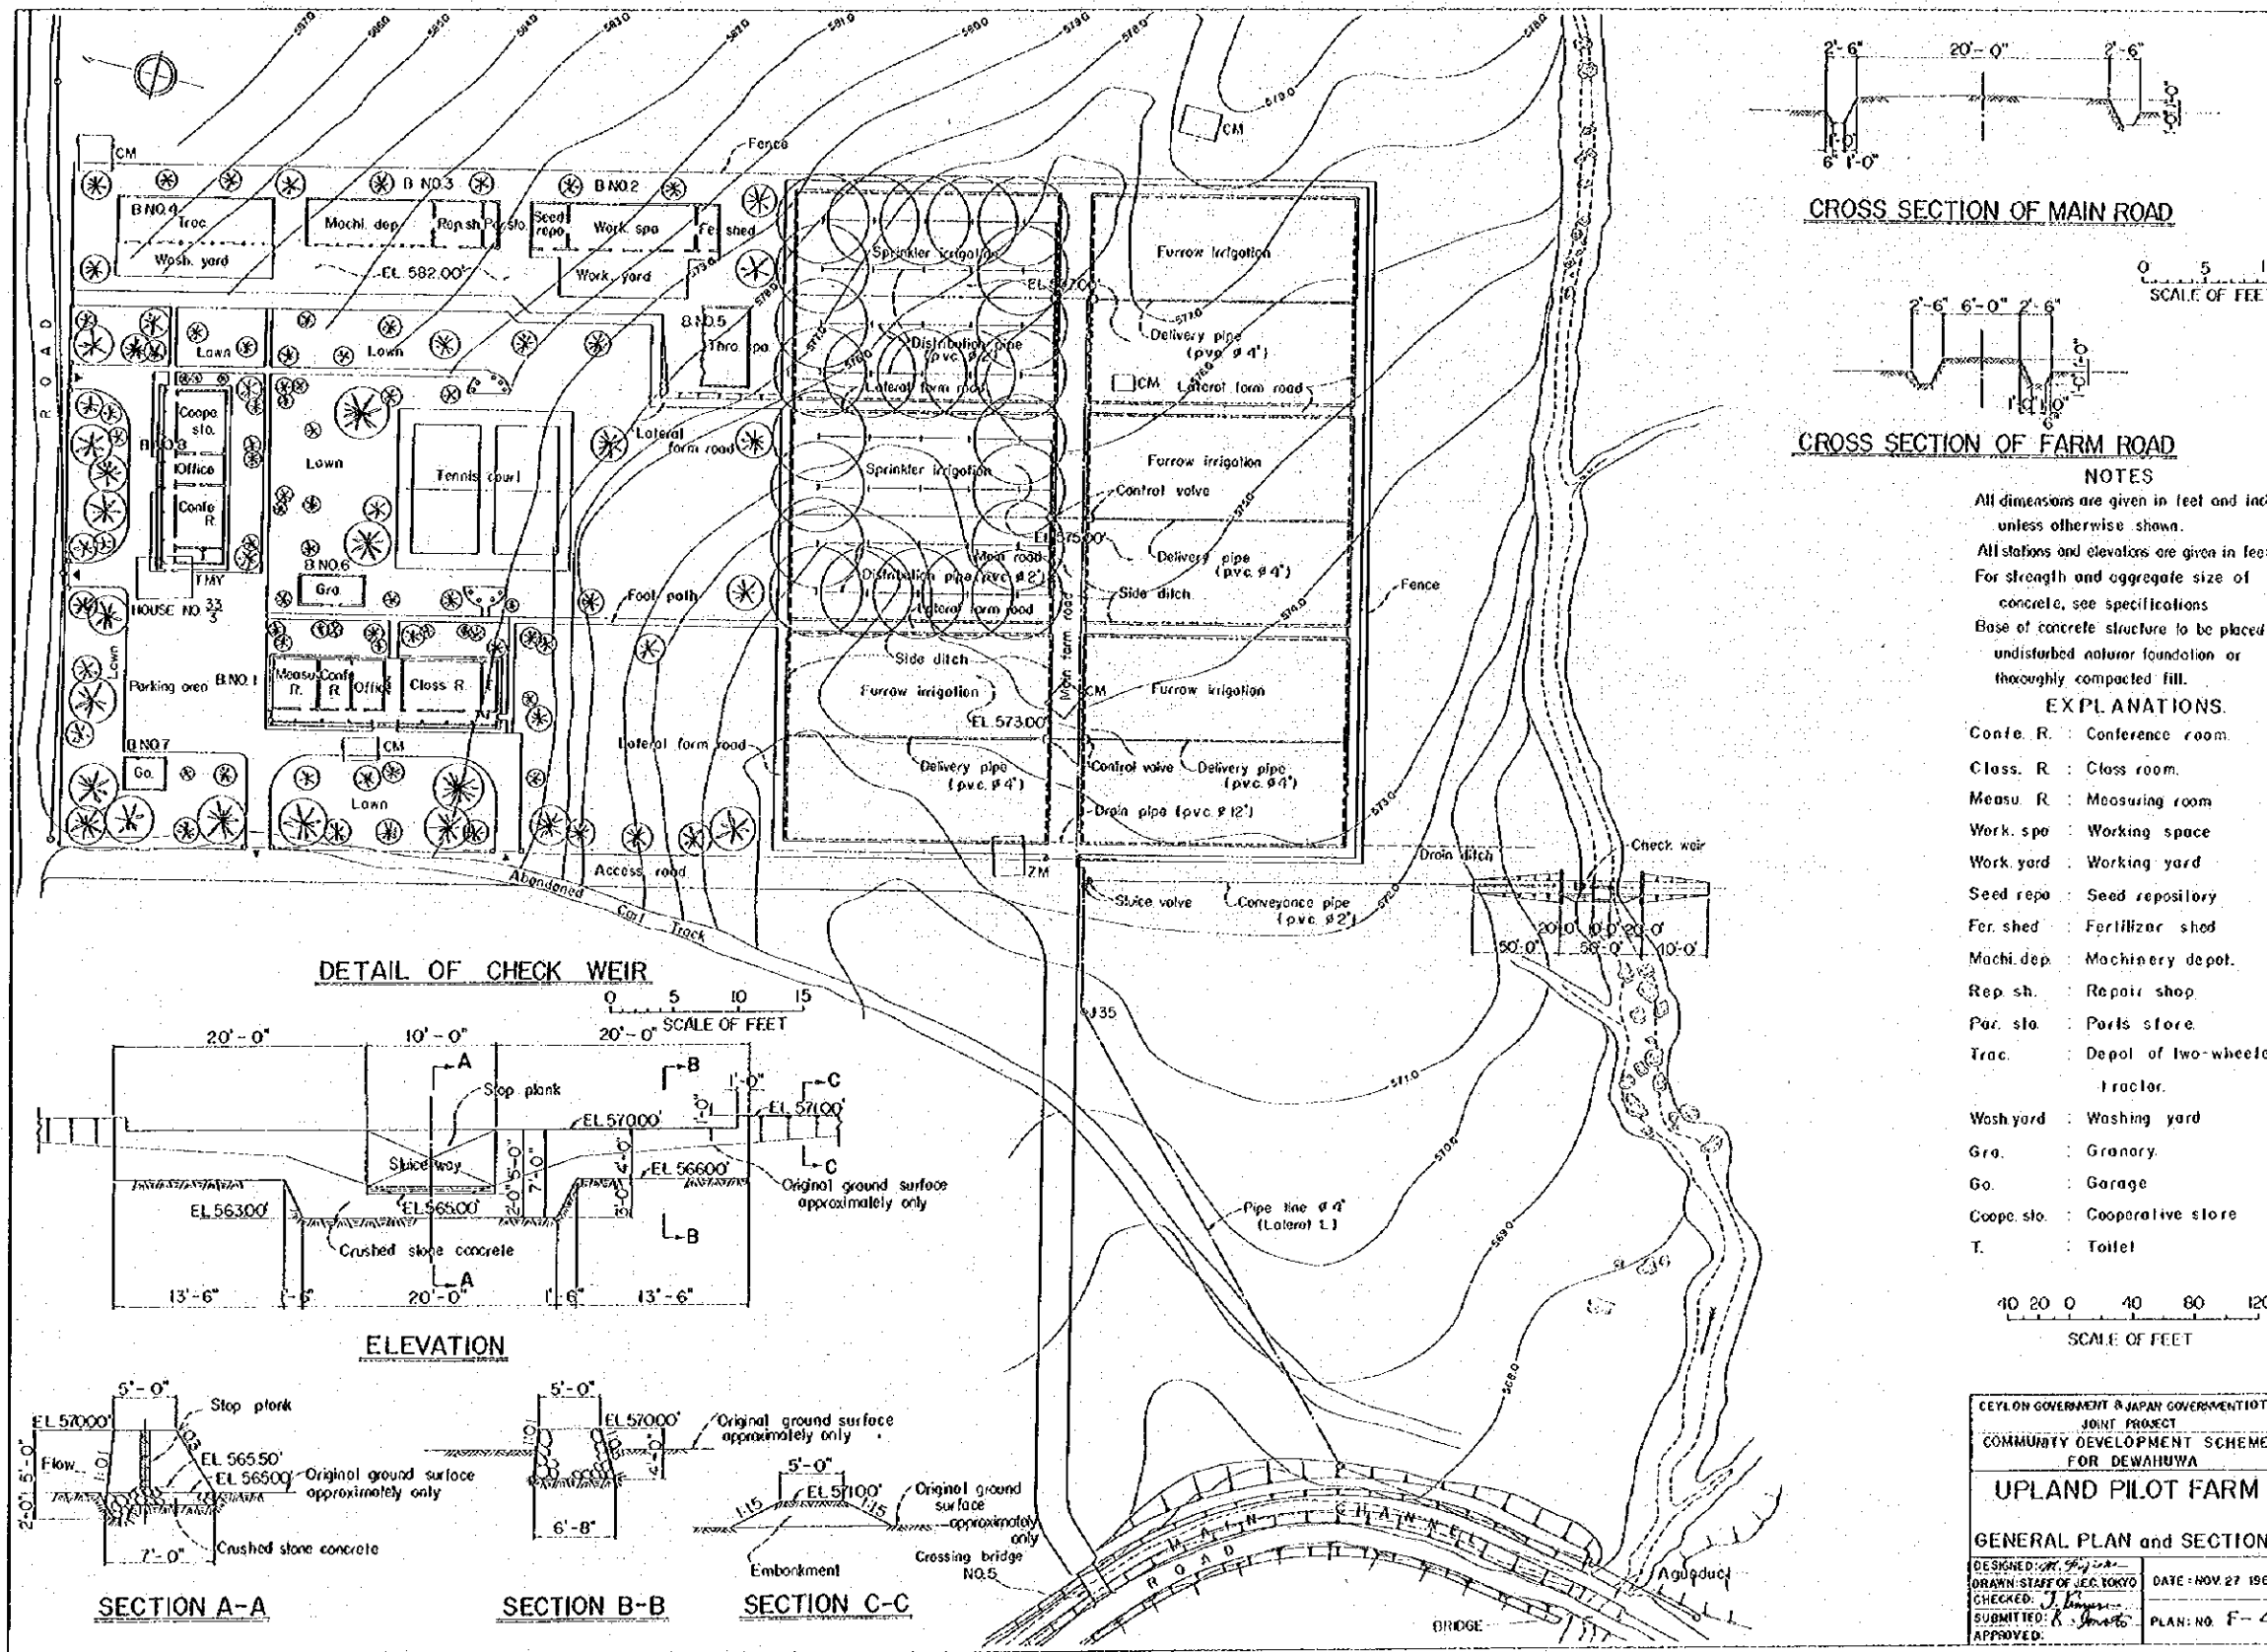 587.0
586.0
585.0
584.0
583.0
582.0
581.0
580.0
579.0
578.0
578.0
579.0
CM
Fence
CM
B NO.3
B NO.2
B NO.4
Trac.
Wash. yard
Machi. dep.
Rep. sh.
Par. sto.
Seed
repo
Work. spa
Fer. shed
Work. yard
EL. 582.00'
579.0
578.0
577.0
576.0
B NO.5
Lawn
Lawn
ROAD
Coope.
sto.
B NO.8
Office
Confe
R.
T MY
HOUSE NO. 33/3
Lawn
Tennis court
B NO.6
Gra.
Lateral
farm road
Foot path
Lawn
Parking area
B NO.1
Measu.
R.
Conf.
R.
Office
Class R.
T
CM
B NO.7
Ga.
Lawn
Lateral farm road
Access road
Abandoned Cart Track
Sprinkler irrigation
Distribution pipe
(p.v.c. ø 2")
Lateral farm road
Sprinkler irrigation
EL. 575.00'
Main road
Distribution pipe (p.v.c. ø 2")
Lateral farm road
Side ditch
Furrow irrigation
EL. 573.00'
Main farm road
CM
Delivery pipe
(p.v.c. ø 4")
Furrow irrigation
577.0
Delivery pipe
(p.v.c. ø 4")
576.0
CM
Lateral farm road
Furrow irrigation
Control valve
575.0
Delivery pipe
(p.v.c. ø 4")
Side ditch
574.0
Fence
Furrow irrigation
Control valve
Delivery pipe
(p.v.c. ø 4")
573.0
Drain pipe (p.v.c. ø 12")
ZM
Sluice valve
Conveyance pipe
(p.v.c. ø 2")
572.0
Drain ditch
Check weir
20'-0"
20'-0"
50'-0"
50'-0"
40'-0"
J35
571.0
570.0
569.0
568.0
Pipe line ø 4"
(Lateral L)
MAIN CHANNEL
ROAD
Crossing bridge
NO.5
Aquaduct
BRIDGE
DETAIL OF CHECK WEIR
0 5 10 15
SCALE OF FEET
20'-0"
10'-0"
20'-0"
A
B
C
1'-0"
Stop plank
EL. 570.00'
EL. 571.00'
Sluice way
2'-0"
5'-0"
7'-0"
4'-0"
EL. 566.00'
Original ground surface
approximately only
EL. 563.00'
EL. 565.00'
Crushed stone concrete
A
B
C
13'-6"
1'-6"
20'-0"
1'-6"
13'-6"
ELEVATION
5'-0"
Stop plank
EL. 570.00'
Flow
EL. 565.50'
EL. 565.00'
Original ground surface
approximately only
2'-0"
5'-0"
7'-0"
Crushed stone concrete
SECTION A-A
5'-0"
EL. 570.00'
Original ground surface
approximately only
4'-0"
6'-8"
SECTION B-B
5'-0"
EL. 571.00'
1:1.5
1:1.5
Original ground
surface
approximately
only
Embankment
SECTION C-C
2'-6"
20'-0"
2'-6"
1'-0"
6"
1'-0"
CROSS SECTION OF MAIN ROAD
0 5 1
SCALE OF FEE
2'-6"
6'-0"
2'-6"
1'-0"
1'-0"
6"
CROSS SECTION OF FARM ROAD
NOTES
All dimensions are given in feet and inc
unless otherwise shown.
All stations and elevations are given in fee
For strength and aggregate size of
concrete, see specifications
Base of concrete structure to be placed
undisturbed naturar foundation or
thoroughly compacted fill.
EXPLANATIONS.
Confe. R. : Conference room.
Class. R. : Class room.
Measu. R. : Measuring room
Work. spa : Working space
Work. yard : Working yard
Seed repo : Seed repository
Fer. shed : Fertilizer shed
Machi. dep. : Machinery depot.
Rep. sh. : Repair shop.
Par. sto. : Parts store.
Trac. : Depot of two-wheele
tractor.
Wash. yard : Washing yard
Gra. : Granary.
Ga. : Garage
Coope. sto. : Cooperative store
T. : Toilet
40 20 0 40 80 120
SCALE OF FEET
CEYLON GOVERNMENT & JAPAN GOVERNMENT(OT
JOINT PROJECT
COMMUNITY DEVELOPMENT SCHEME
FOR DEWAHUWA
UPLAND PILOT FARM
GENERAL PLAN and SECTION
DESIGNED:
DRAWN: STAFF OF J.E.C. TOKYO
CHECKED:
SUBMITTED:
APPROVED:
DATE: NOV. 27 196
PLAN: NO. F-